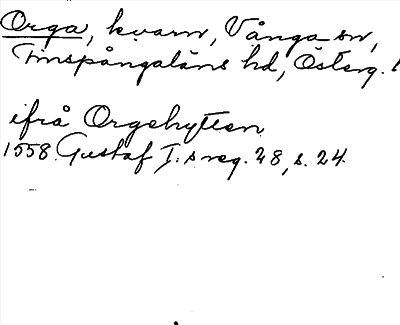 Orga, kvarn, Vånga sn,
Finspångaläns hd, Österg. l
ifrå Orgehytten
1558. Gustaf I:s reg. 28, s. 24.